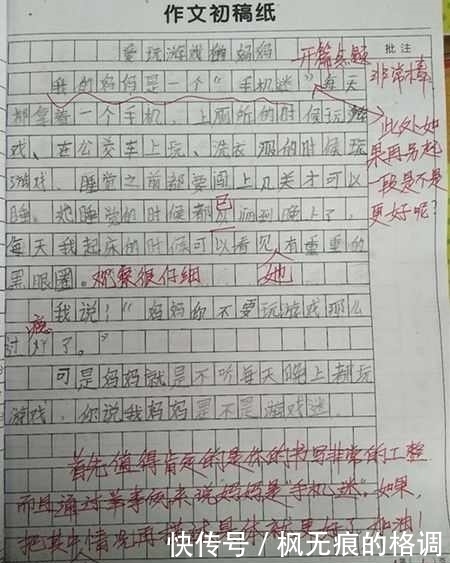 作文初稿纸
爱玩游戏的妈妈
开篇点题
批注
非常棒
我的妈妈是一个“手机迷”每天
都拿着一个手机,上厕所的时候玩游
戏、在公交车上玩、洗衣服的时候玩
游戏、睡觉之前都要闯上几关才可以
此处如
果再另起
一段是不是
更好呢?
睡。她睡觉的时候都已
到晚上了,
每天我起床的时候可以看见她有重重的
黑眼圈。观察很仔细
我说:“妈妈你不要玩游戏那么
过瘾了。”
可是妈妈就是不听每天晚上都玩
游戏,你说我妈妈是不是游戏迷
首先值得肯定的是你的书写非常的工整
而且通过举事例来说妈妈是“手机迷”,如果,
把其中情况再描述具体就更好了,加油!
快传号/枫无痕的格调